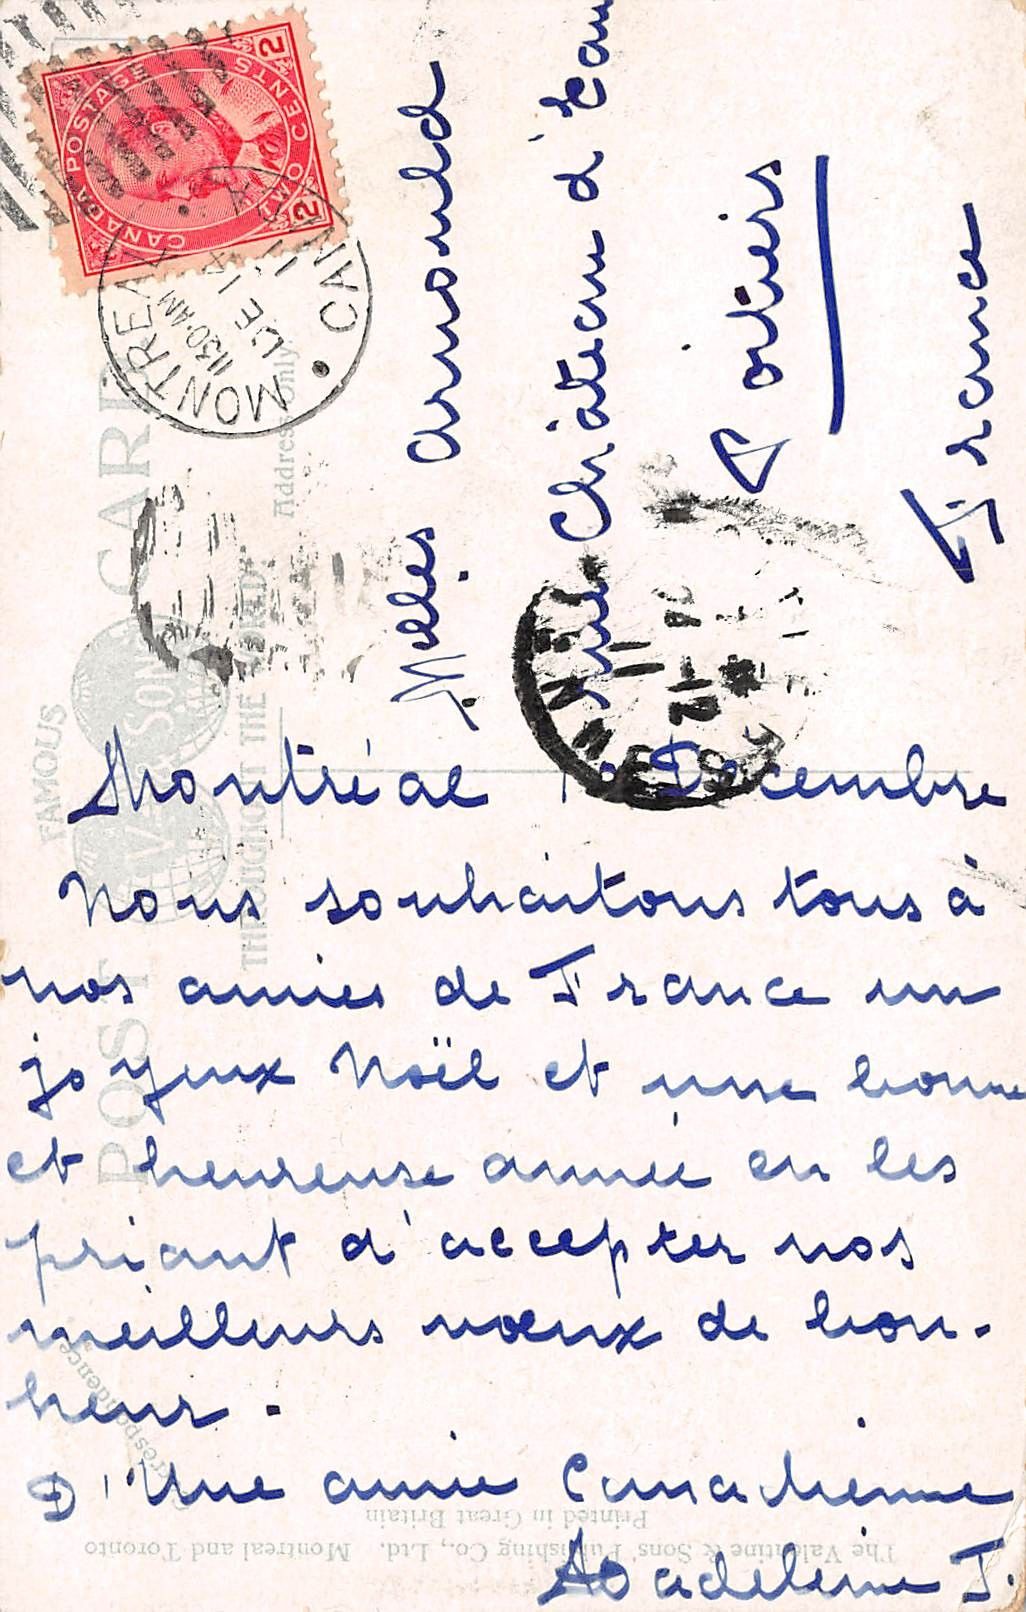 CANADA POSTAGE
TWO CENTS
2 2
MONTREAL
CAN
1130 AM
DE 14
POST CARD
FAMOUS
THROUGHOUT THE WORLD
Address only
Melles Arnould
rue Château d'Eau
Poitiers
France
11
12
Montréal Décembre
Nous souhaitons tous à
nos amies de France un
joyeux Noël et une bonne
et heureuse année en les
priant d'accepter nos
meilleurs voeux de bon-
heur.
D'Une amie Canadienne
Madeleine J.
Correspondence
The Valentine & Sons' Publishing Co., Ltd. Montreal and Toronto
Printed in Great Britain